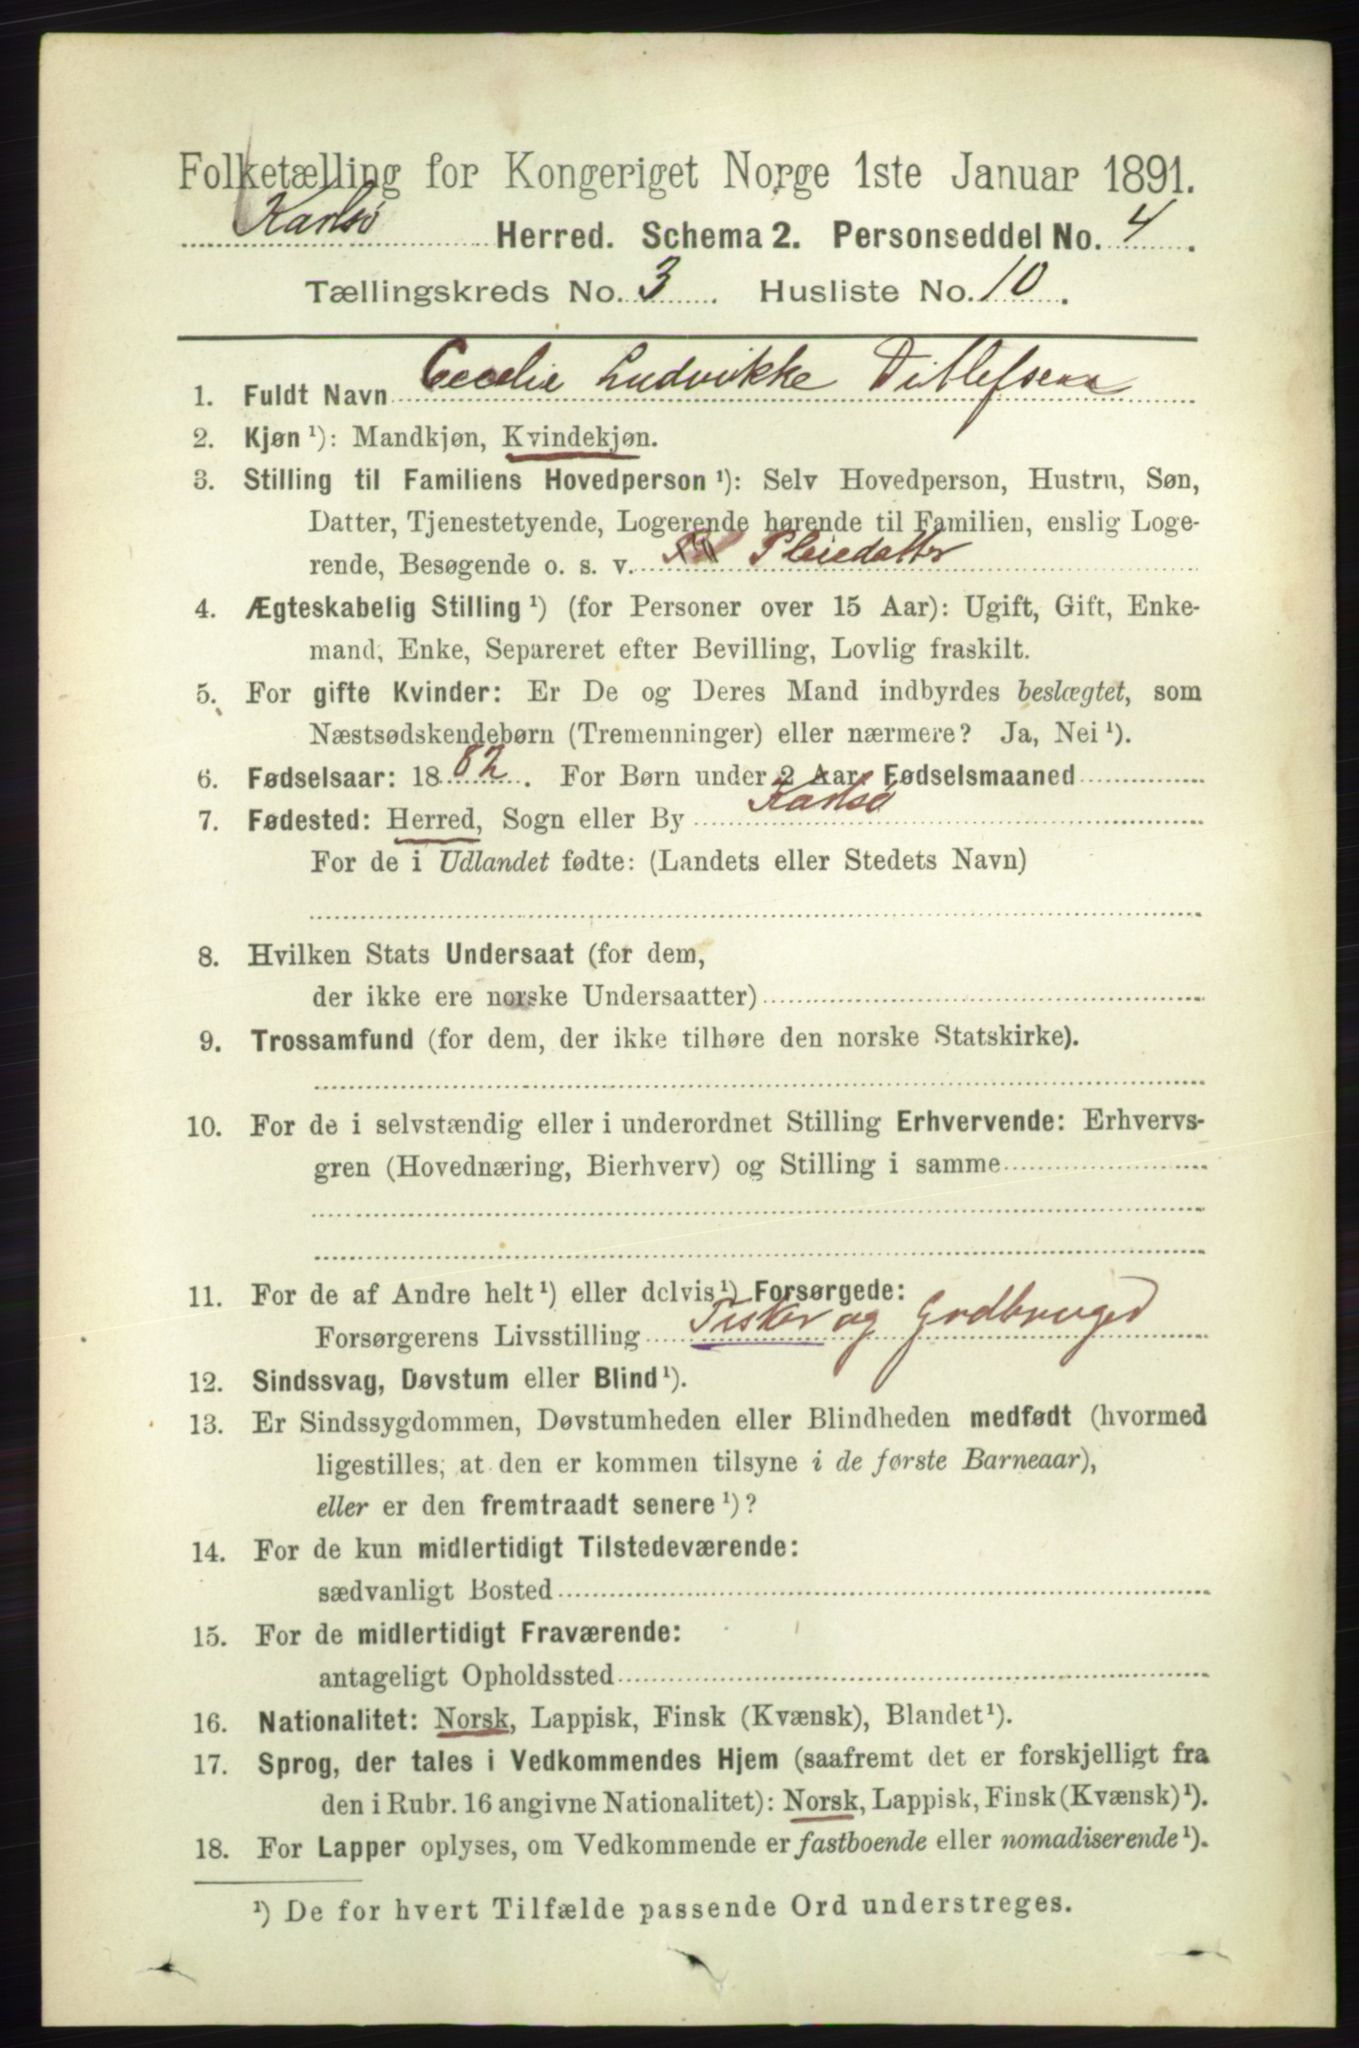 Folketælling for Kongeriget Norge 1ste Januar 1891.
Karlsø Herred. Schema 2. Personseddel No. 4.
Tællingskreds No. 3. Husliste No. 10.
1. Fuldt Navn Cecelie Ludvikke Ditlefsen
2. Kjøn ¹): Mandkjøn, Kvindekjøn.
3. Stilling til Familiens Hovedperson ¹): Selv Hovedperson, Hustru, Søn,
Datter, Tjenestetyende, Logerende hørende til Familien, enslig Loge-
rende, Besøgende o. s. v. Pleiedatter
4. Ægteskabelig Stilling ¹) (for Personer over 15 Aar): Ugift, Gift, Enke-
mand, Enke, Separeret efter Bevilling, Lovlig fraskilt.
5. For gifte Kvinder: Er De og Deres Mand indbyrdes beslægtet, som
Næstsødskendebørn (Tremenninger) eller nærmere? Ja, Nei ¹).
6. Fødselsaar: 1882. For Børn under 2 Aar Fødselsmaaned
7. Fødested: Herred, Sogn eller By Karlsø
For de i Udlandet fødte: (Landets eller Stedets Navn)
8. Hvilken Stats Undersaat (for dem,
der ikke ere norske Undersaatter)
9. Trossamfund (for dem, der ikke tilhøre den norske Statskirke).
10. For de i selvstændig eller i underordnet Stilling Erhvervende: Erhvervs-
gren (Hovednæring, Bierhverv) og Stilling i samme
11. For de af Andre helt ¹) eller delvis ¹) Forsørgede:
Forsørgerens Livsstilling Fisker og Grdbruger
12. Sindssvag, Døvstum eller Blind ¹).
13. Er Sindssygdommen, Døvstumheden eller Blindheden medfødt (hvormed
ligestilles, at den er kommen tilsyne i de første Barneaar),
eller er den fremtraadt senere ¹)?
14. For de kun midlertidigt Tilstedeværende:
sædvanligt Bosted
15. For de midlertidigt Fraværende:
antageligt Opholdssted
16. Nationalitet: Norsk, Lappisk, Finsk (Kvænsk), Blandet ¹).
17. Sprog, der tales i Vedkommendes Hjem (saafremt det er forskjelligt fra
den i Rubr. 16 angivne Nationalitet): Norsk, Lappisk, Finsk (Kvænsk) ¹).
18. For Lapper oplyses, om Vedkommende er fastboende eller nomadiserende ¹).
¹) De for hvert Tilfælde passende Ord understreges.